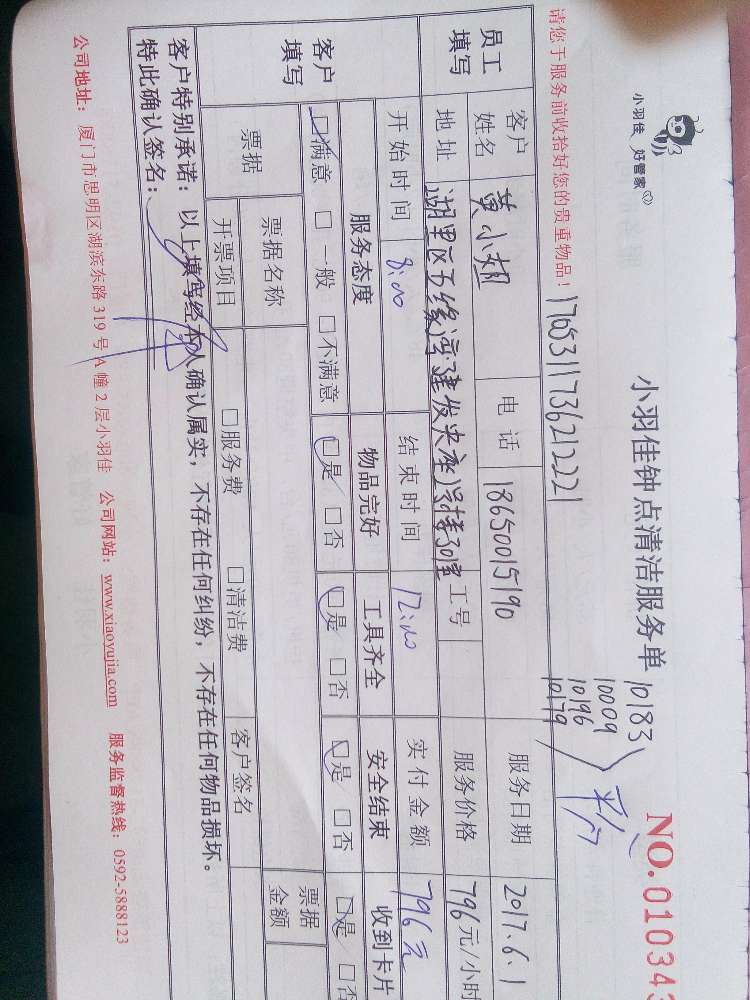 小羽佳 好管家
小羽佳钟点清洁服务单
NO. 01034
10183
10009
10196
10179
请您于服务前收拾好您的贵重物品！
1765311736212221
员工填写
客户姓名 黄小姐 电话 18650015190 服务日期 2017.6.1
地址 湖里区五缘湾建发央座 工号 服务价格 796元/小时
客户填写
开始时间 8:00 结束时间 12:00 实付金额 796元
服务态度 物品完好 工具齐全 安全结束 收到卡片
□满意 □一般 □不满意 □是 □否 □是 □否 □是 □否 □是 □否
票据 票据名称 票据金额
开票项目 □服务费 □清洁费 客户签名
客户特别承诺：以上填写经本人确认属实，不存在任何纠纷，不存在任何物品损坏。
特此确认签名：
公司地址：厦门市思明区湖滨东路319号A幢2层小羽佳 公司网站：www.xiaoyujia.com 服务监督热线：0592-5888123